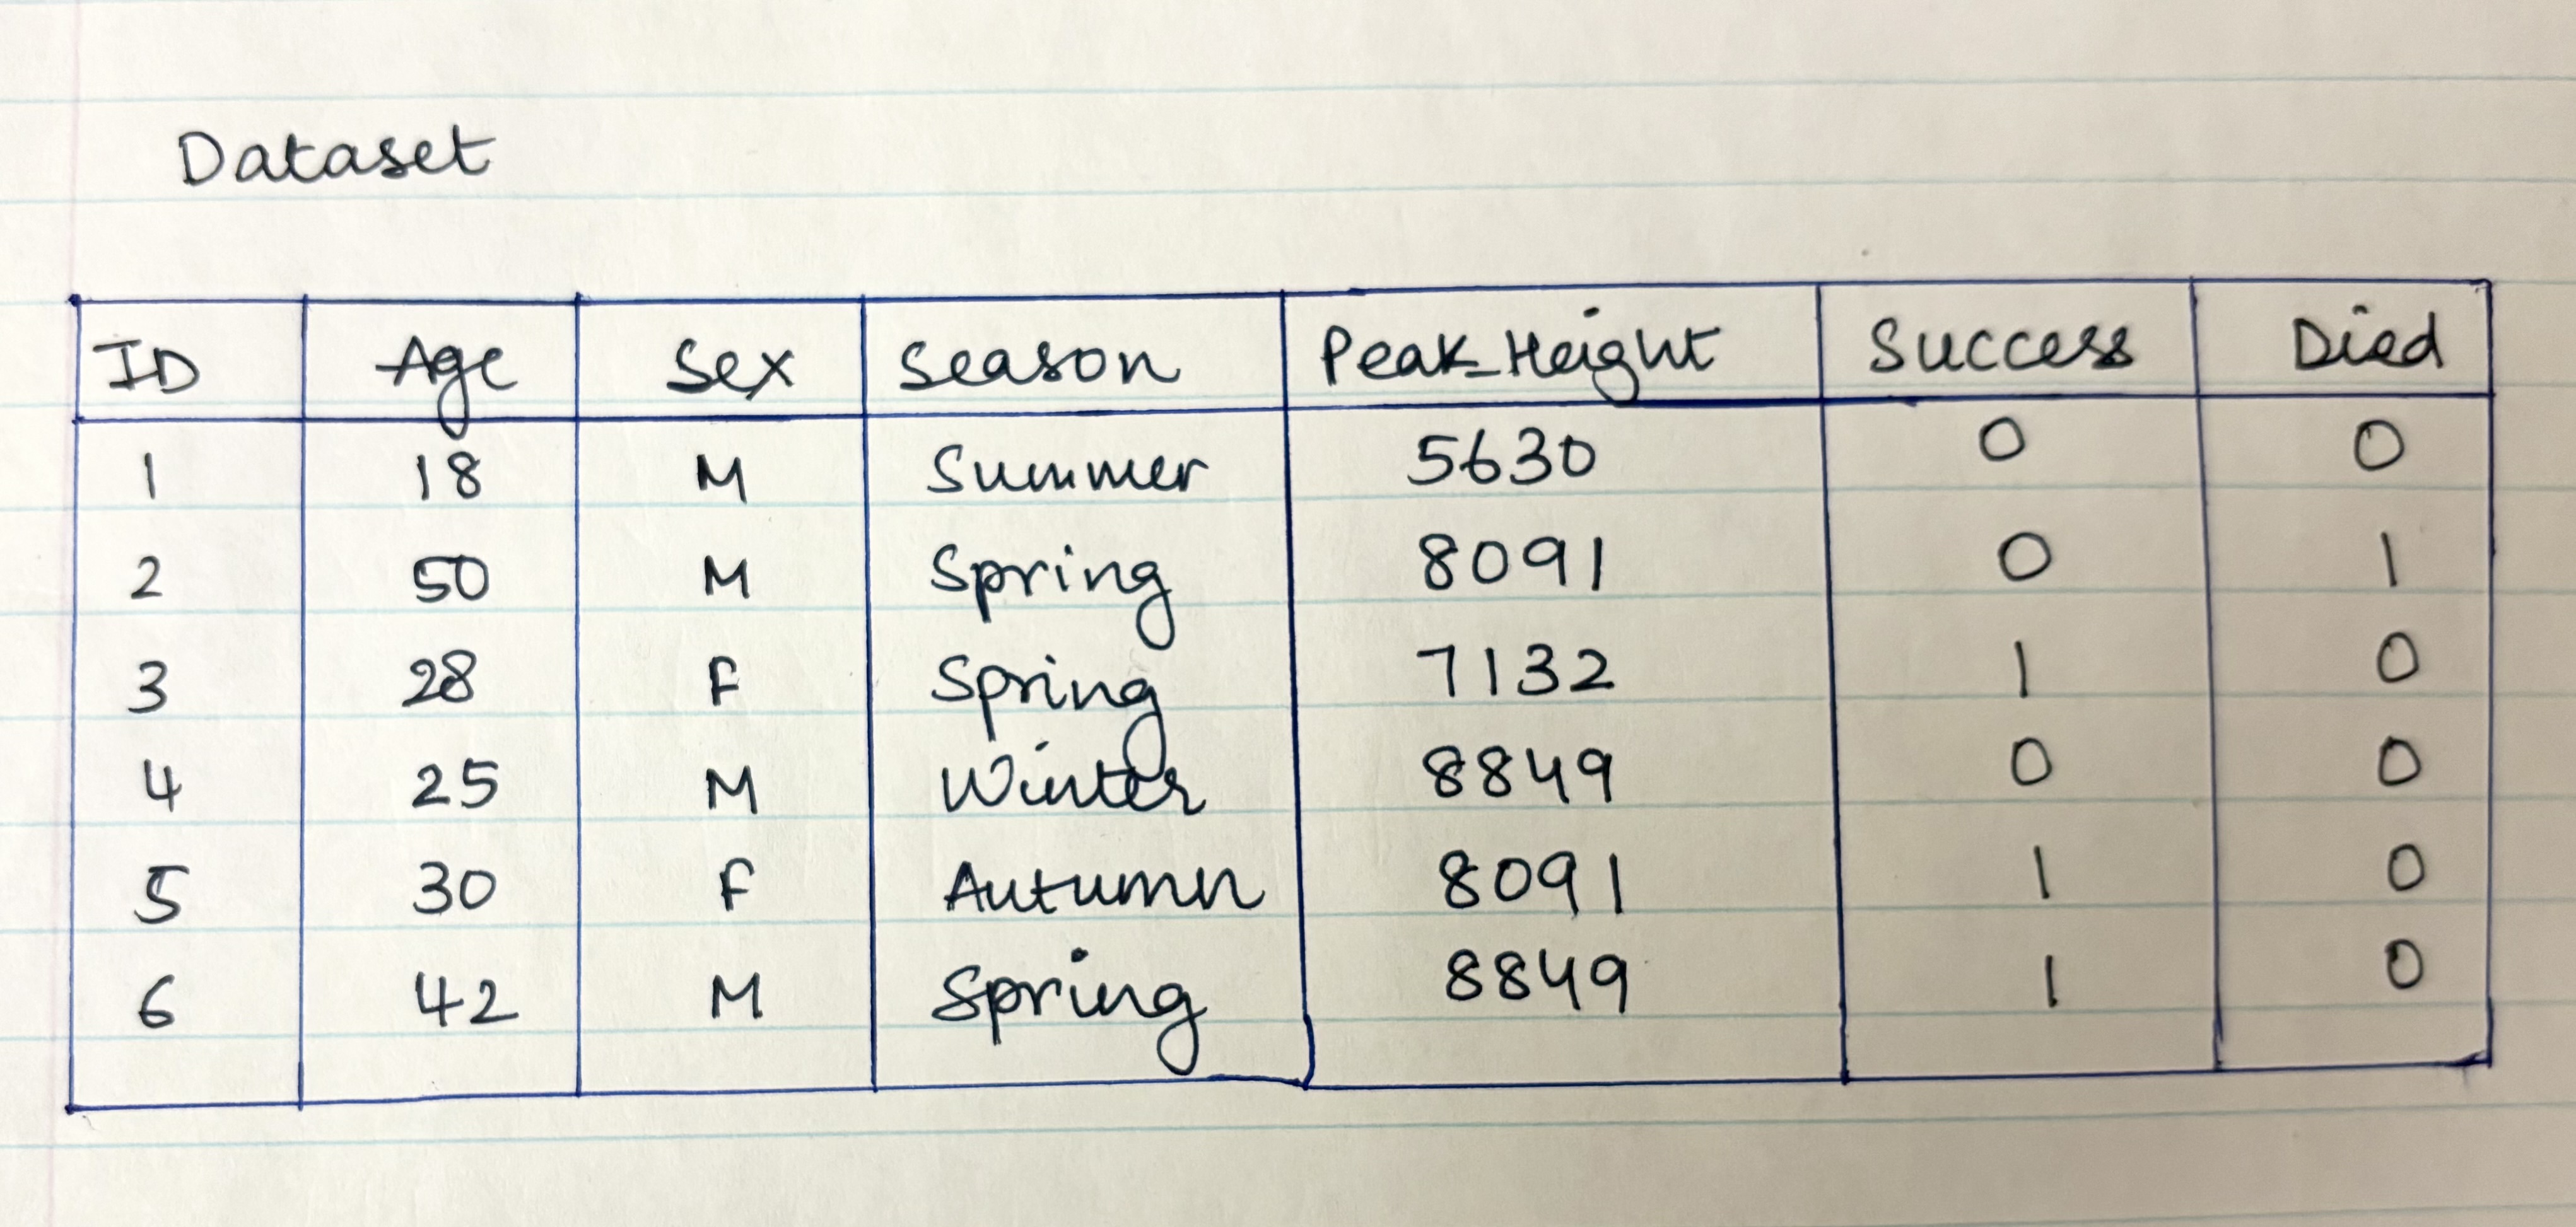 Dataset
ID Age Sex Season Peak_Height Success Died
1 18 M Summer 5630 0 0
2 50 M Spring 8091 0 1
3 28 F Spring 7132 1 0
4 25 M Winter 8849 0 0
5 30 F Autumn 8091 1 0
6 42 M Spring 8849 1 0